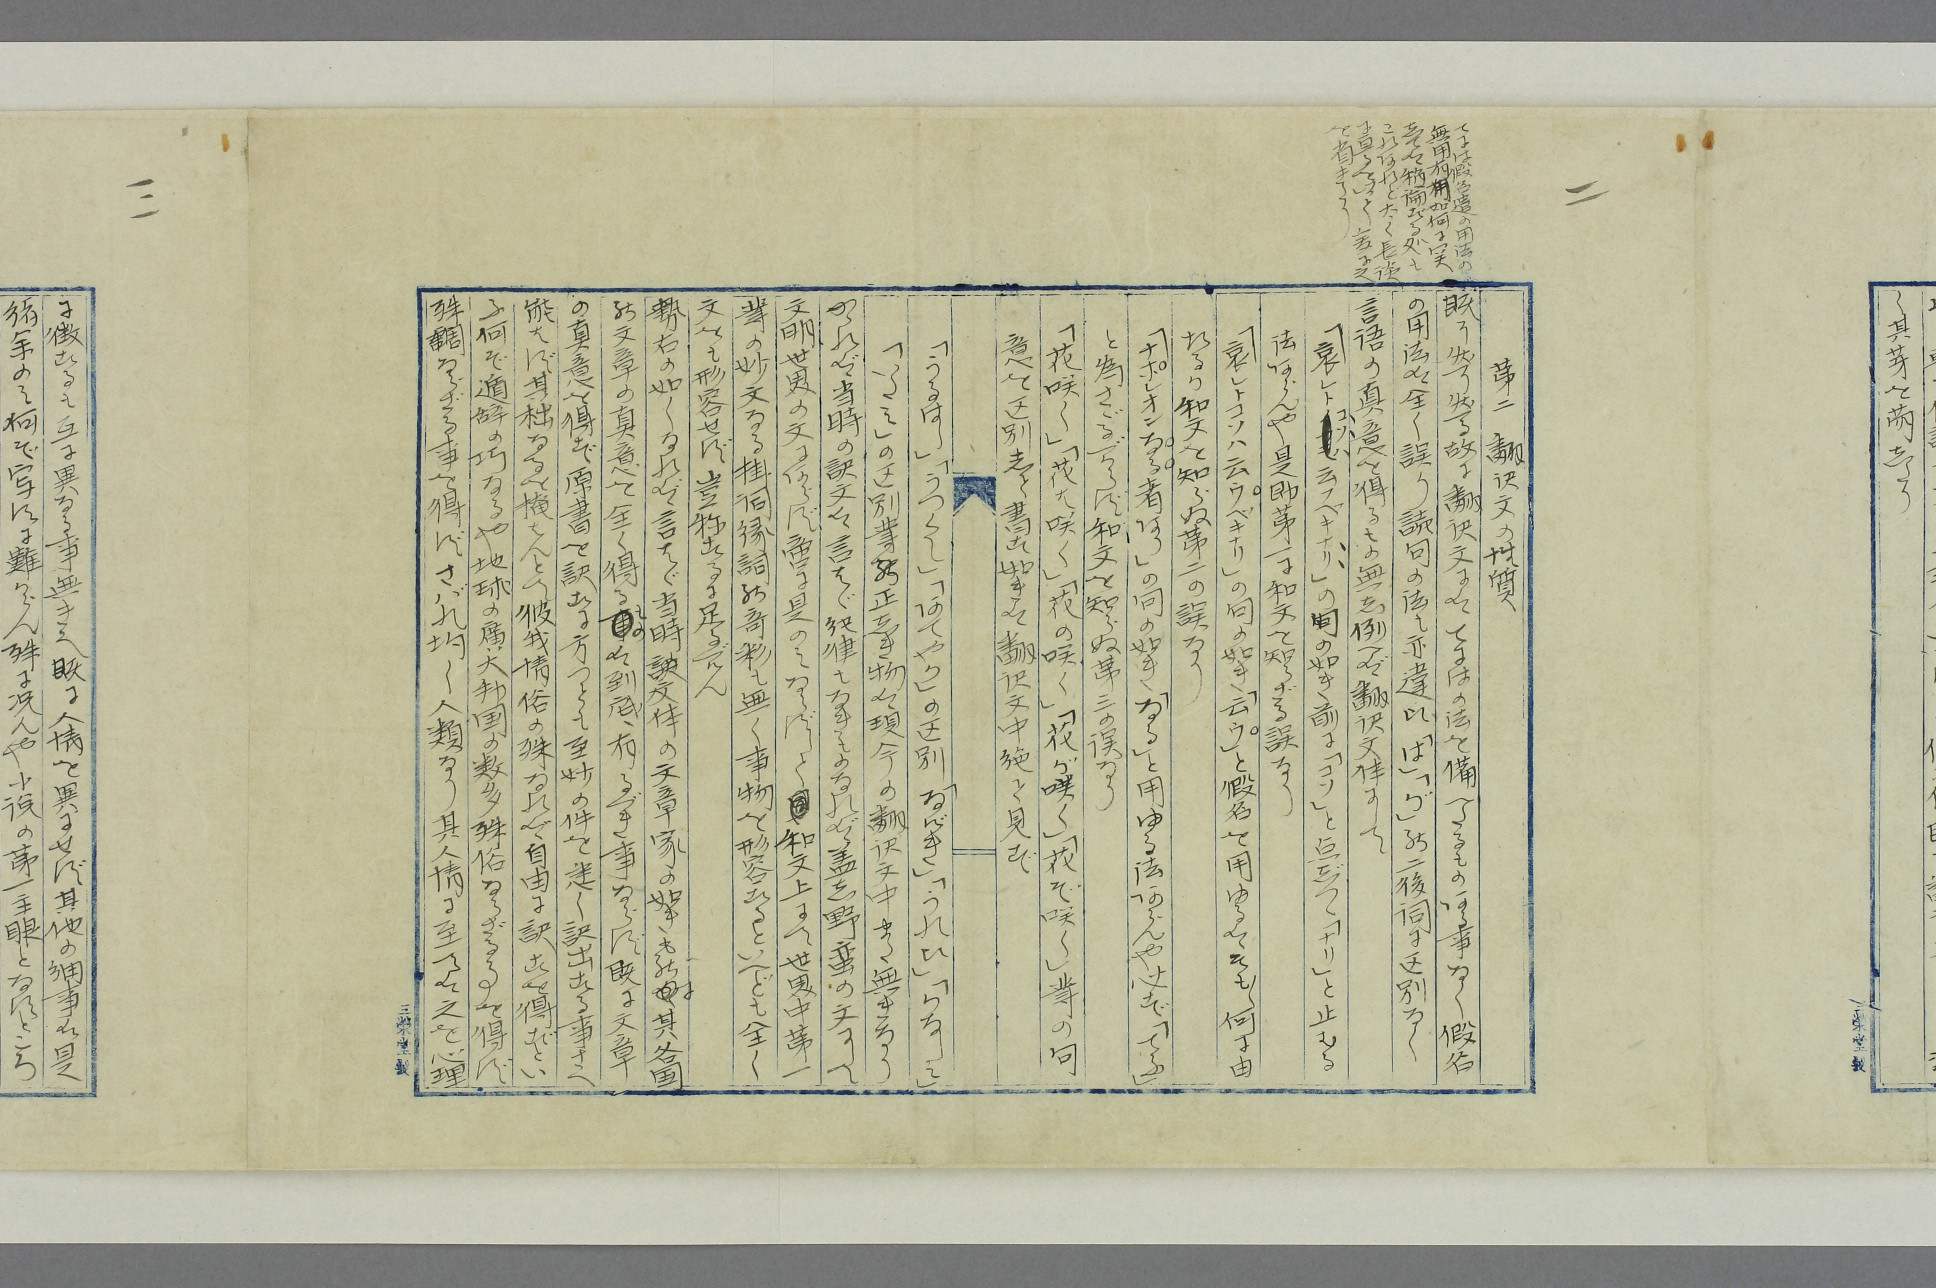 く其芽を萌せり
三楽堂製
二
てには假名遣の用法の
無用有用如何は実
これあれど太く長談
を省きたり
第二 翻訳文の性質
既に然り然る故に翻訳文には てにはの法を備へたるものある事なく假名
の用法は全く誤り読句の法も亦違ひ「は」「が」の二後詞に区別なく
言語の真意を得るもの無し例へば翻訳文体にて
「哀レトコソハ云フベキナリ」の句の如き前に「コソ」と応じて「ナリ」と止むる
法あらんや是即第一に和文を知らざる誤なり
「哀レトコソハ云ウベキナリ」の句の如き「云ウ」と假名を用ゆるはそも何に由
れるか和文を知らぬ第二の誤なり
「ナポレオンなる者あり」の句の如き「なる」と用ゆる法あらんや必ず「てふ」
と為さざるべからず和文を知らぬ第三の誤なり
「花咲く」「花は咲く」「花の咲く」「花が咲く」「花ぞ咲く」等の句
意を区別して書す如きは翻訳文中絶て見ず
「うるはし」「うつくし」「あてやか」の区別「なげき」「うれひ」「かなしみ」
「いたみ」の区別等の正しき物は現今の翻訳文中またく無きなり
かかれば当時の訳文は言はば規律もなきものなれば盖し野蛮の文なり
文明世界の文にあらず啻に是のみならず 和文上にて世界中第一
等の妙文なる掛詞縁詞の奇彩も無く事物を形容するといへども全く
文をも形容せず豈称するに足るべけん
勢右の如くなれば言はば当時訳文体の文章家の如きも其各国
の文章の真意を全く得るものは到底有るべき事ならず既に文章
の真意を得ず原書を訳す方つても至妙の件を悉く訳出する事さへ
能はず其拙なるを掩はんとて彼我情俗の殊なれば自由に訳すを得ずとい
ふ何ぞ遁辞の巧なるや地球の廣大邦国の数多殊俗ならざるを得ず
殊調ならざる事を得ずされ均しく人類なり其人情に至ては之を心理
三楽堂製
三
に徴するも互に異なる事無きを既に人情を異にせず其他の細事は是
緒余のみ何ぞ写すに難からん殊に況んや小説の第一主眼となすところ